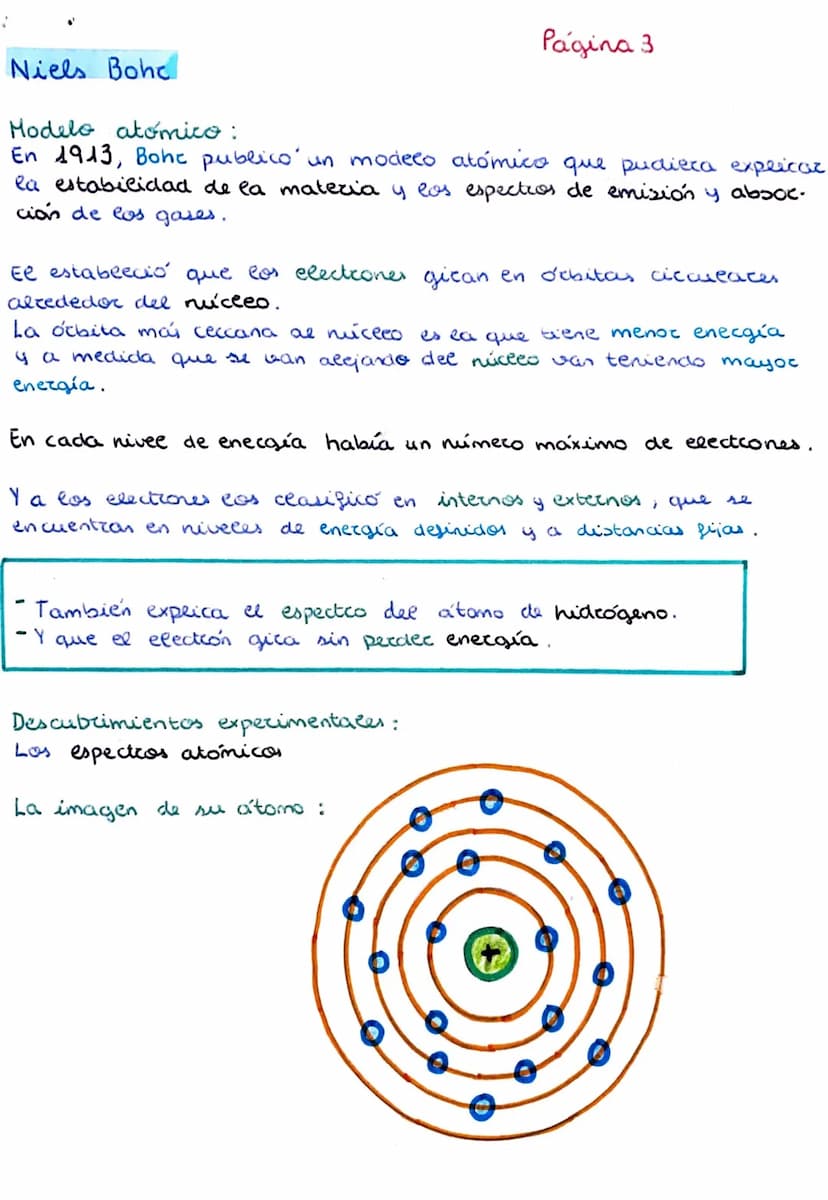 Página 3
Niels Bohr
Modelo atómico:
En 1913, Bohr publicó un modelo atómico que pudiera explicar
la estabilidad de la materia y los espectros de emisión y absor-
ción de los gases.
El estableció que los electrones giran en órbitas circulares
alrededor del núcleo.
La órbita más cercana al núcleo es la que tiene menor energía
y a medida que se van alejando del núcleo van teniendo mayor
energía.
En cada nivel de energía había un número máximo de electrones.
Y a los electrones los clasificó en internos y externos, que se
encuentran en niveles de energía definidos y a distancias fijas.
- También explica el espectro del átomo de hidrógeno.
- Y que el electrón gira sin perder energía.
Descubrimientos experimentales:
Los espectros atómicos
La imagen de su átomo:
+